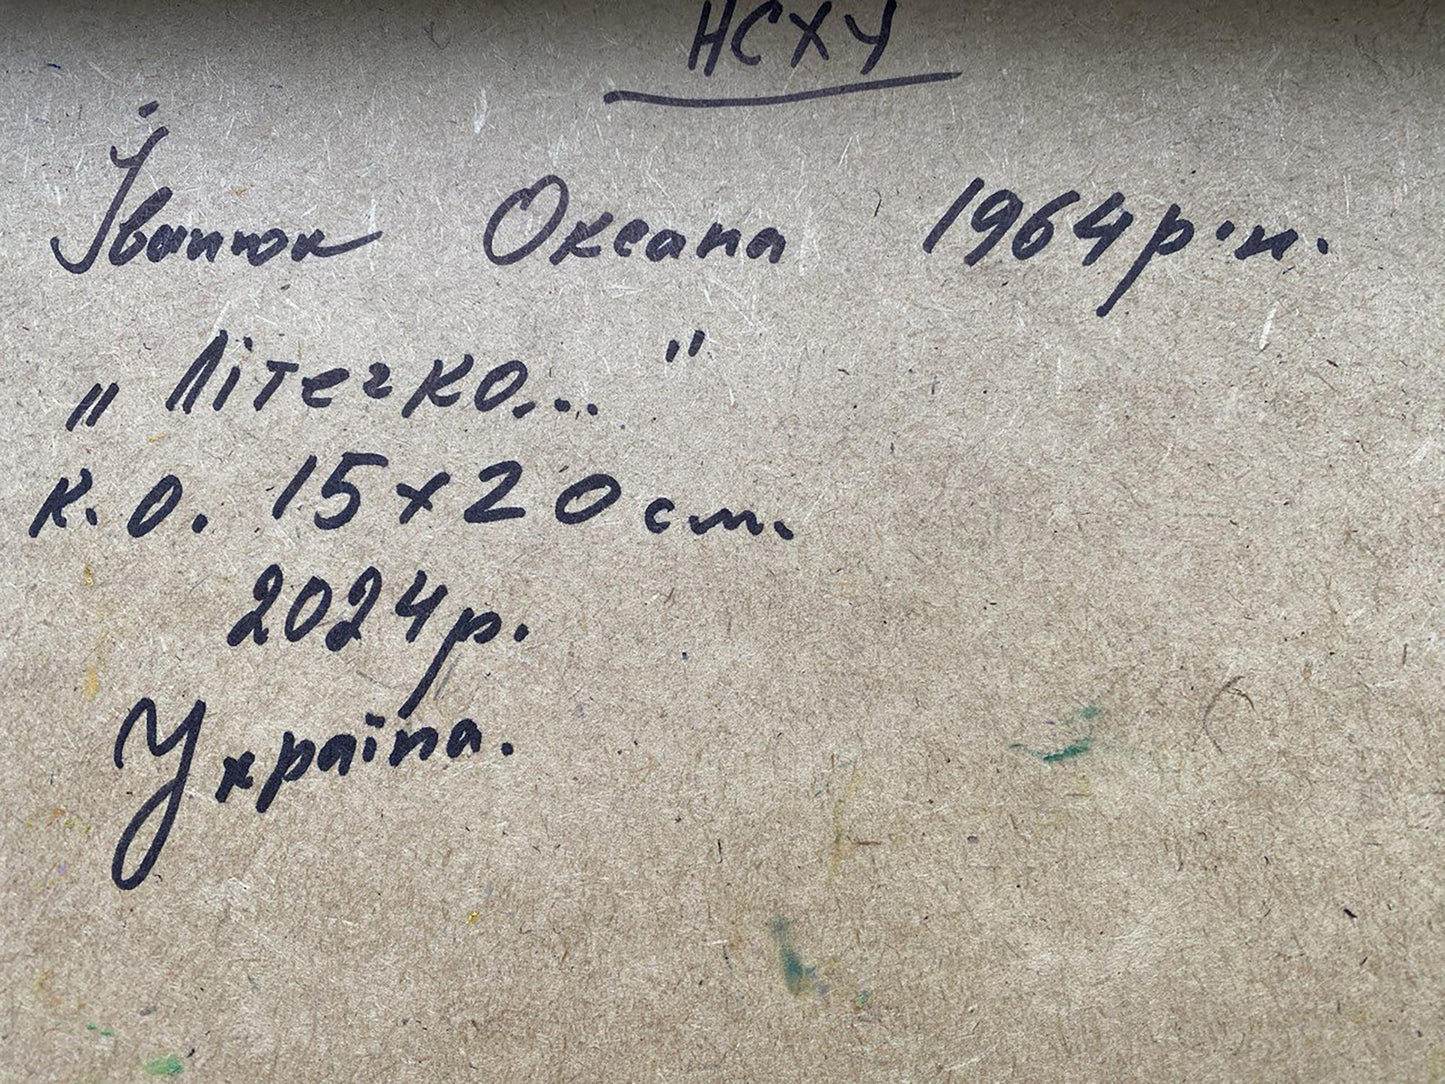 НСХУ
Іванюк Оксана 1964 р.н.
„Літечко..."
к.о. 15х20 см.
2024р.
Україна.